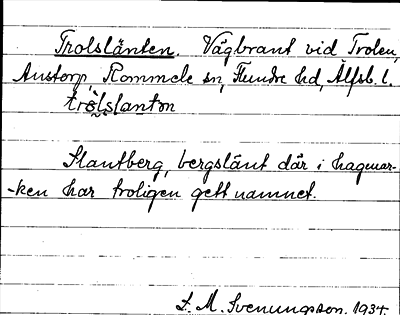 Trolslänten. Vägbrant vid Trolen,
Anstorp, Rommele sn, Flundre hd, Älfsb. l.
tròlslanton
Slantberg, bergslänt där i hagmar-
-ken har troligen gett namnet.
L. M. Svenungsson. 1934.